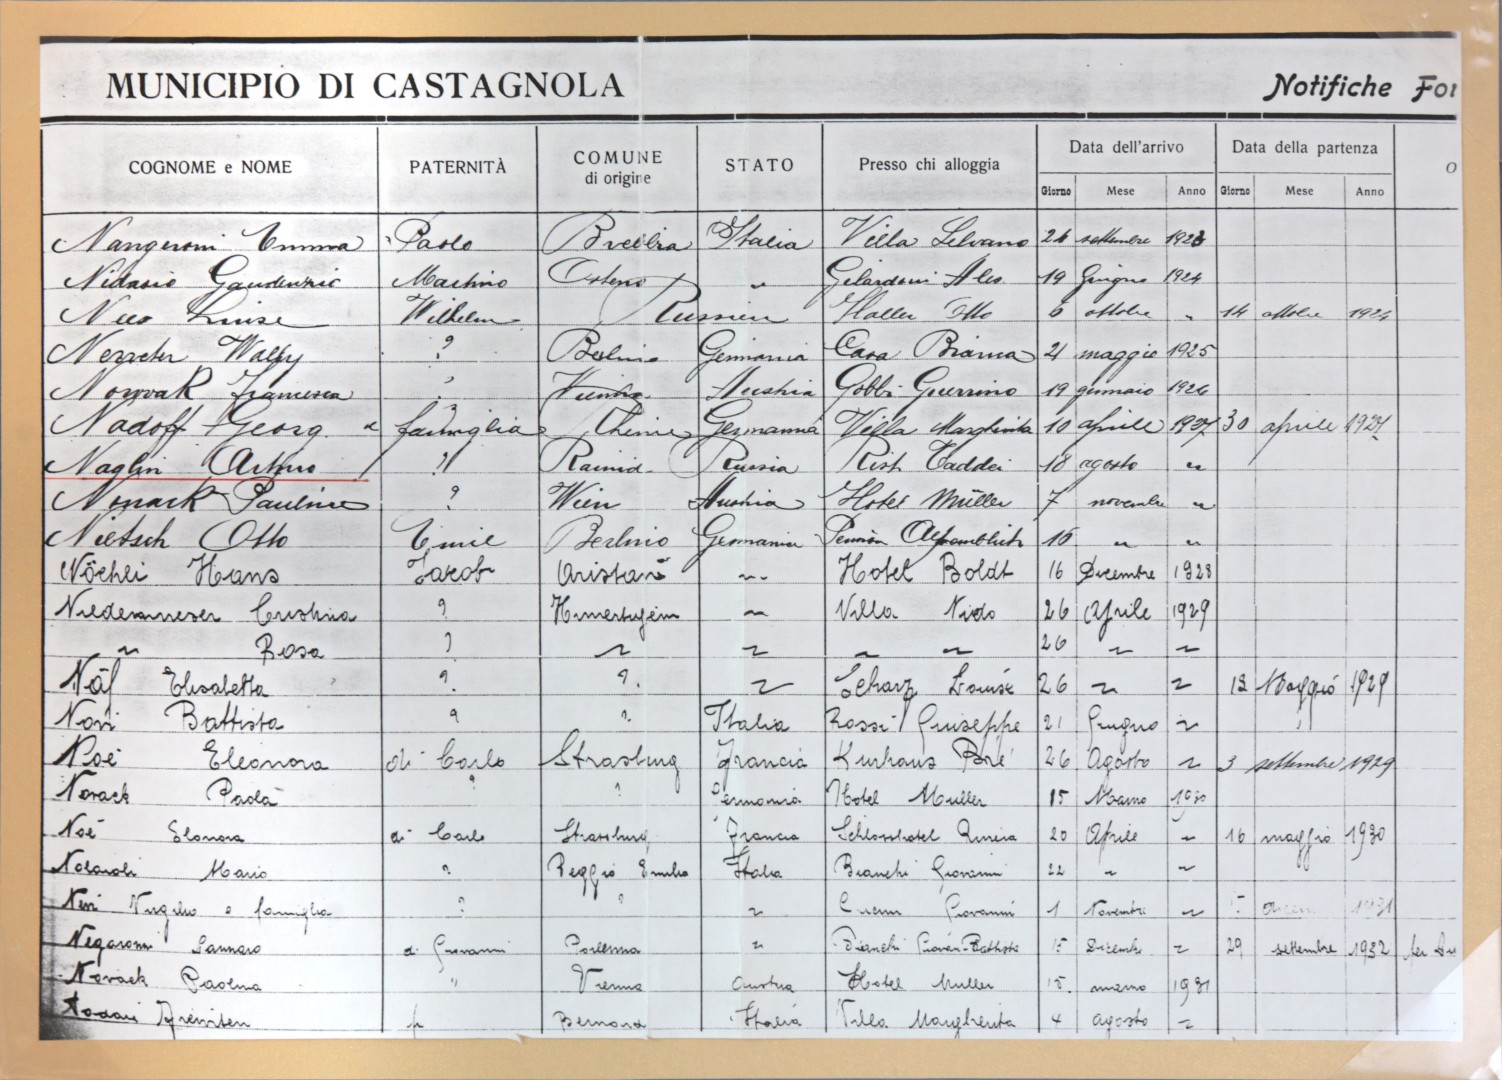 MUNICIPIO DI CASTAGNOLA Notifiche For
COGNOME e NOME PATERNITÀ COMUNE di origine STATO Presso chi alloggia Data dell'arrivo Data della partenza o
Giorno Mese Anno Giorno Mese Anno
Nangeroni Emma Paolo Italia Villa Selvano 26 settembre
Nidasio Gaudenzio Martino Osteno " Gilardoni Ales. 19 Giugno 1924
Luise Wilhelm Russien Haller Otto 6 ottobre " 14 ottobre 1924
Wally ? Berlino Germania Casa Bianca 21 maggio 1925
Nowak Francesca ? Vienna Austria Gobbi Guerrino 19 gennaio 1926
Nadoff Georg e famiglia Germania Villa Margherita 10 aprile 1927 30 aprile 1927
Naglin Arturo ? Russia Rist. Taddei 18 agosto "
Nowack Pauline ? Wien Austria Hotel Müller 7 novembre "
Nietsch Otto Emil Berlino Germania Pension 16 " "
Nöchli Hans Jacob Aristau " Hotel Boldt 16 Dicembre 1928
Cristina ? Villa Nido 26 Aprile 1929
" Rosa ? " " " " 26 " "
Näf Elisabetta ? ? " Scharz Louise 26 " " 12 Maggio 1929
Novi Battista ? ? Italia Rossi Giuseppe 21 Giugno "
Noé Eleonora di Carlo Strasburg Francia Kurhaus Bré 26 Agosto " 3 settembre 1929
Novack Paola ? ? Germania Hotel Muller 15 Marzo 1930
Noé Elonora di Carlo Strassburg Francia Schlosshotel 20 Aprile " 16 maggio 1930
Mario ? Reggio Emilia Italia Bianchi Giovanni 22 " "
Neri Virgilio e famiglia ? ? " Giovanni 1 Novembre " 1931
Gennaro di Giovanni " Bianchi Giovan-Battista 15 Dicembre " 29 settembre 1932
Novack Paolina " Vienna Austria Hotel Muller 15. marzo 1931
Italia Villa Margherita 4 agosto "